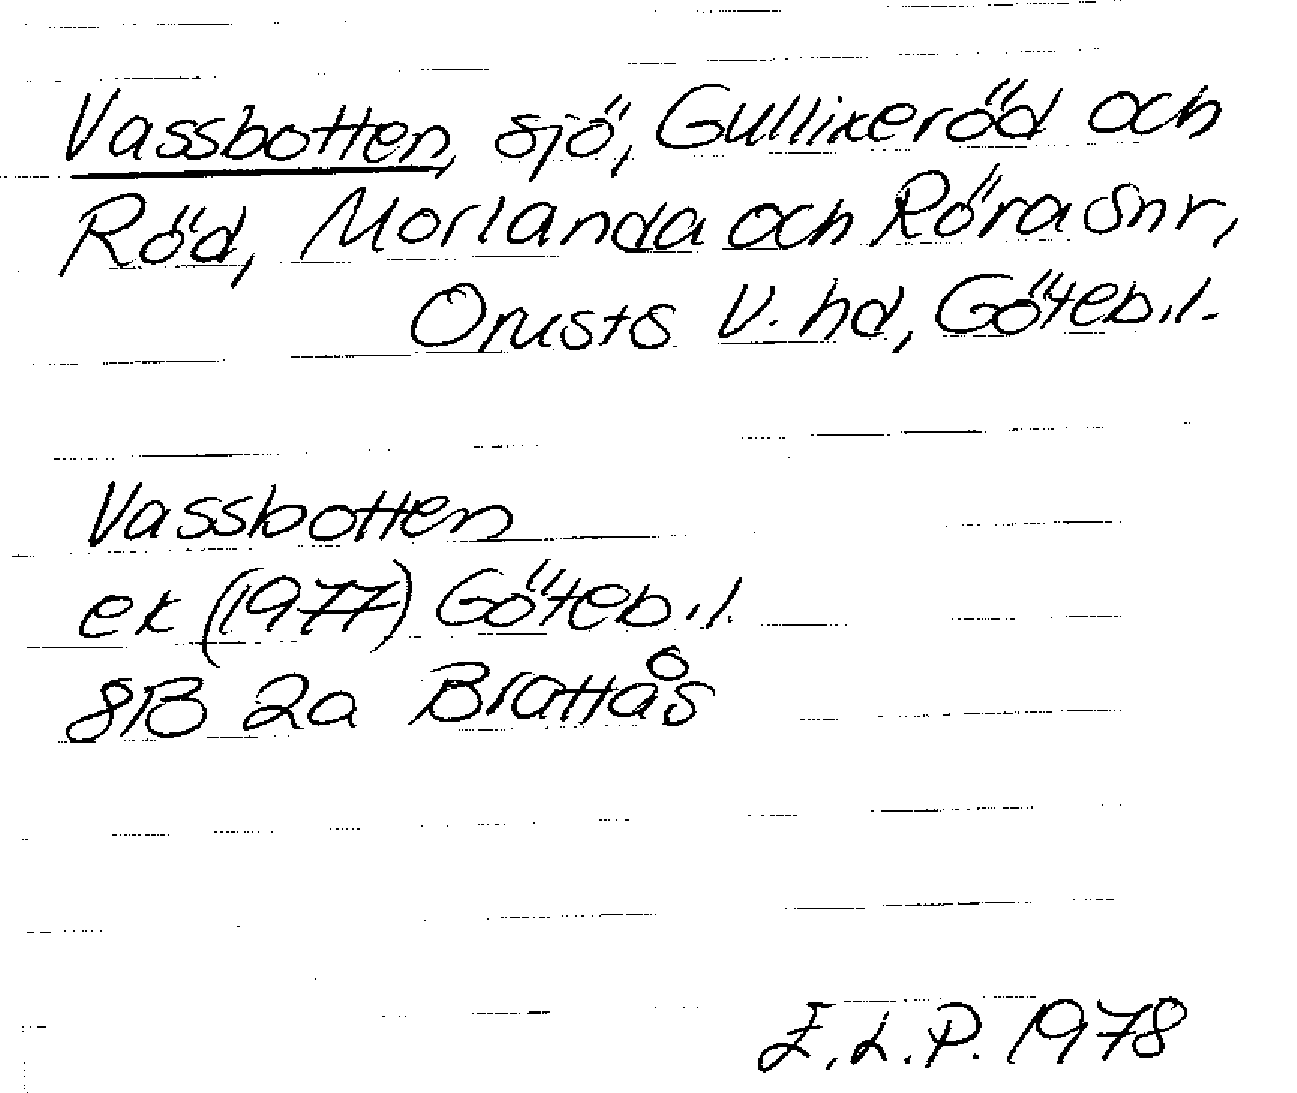 Vassbotten, sjö, Gullikeröd och
Röd, Morlanda och Röra snr,
Orusts V. hd, Göteb.l.
Vassbotten
ek (1977) Göteb.l.
8B 2a Brattås
E.L.P. 1978